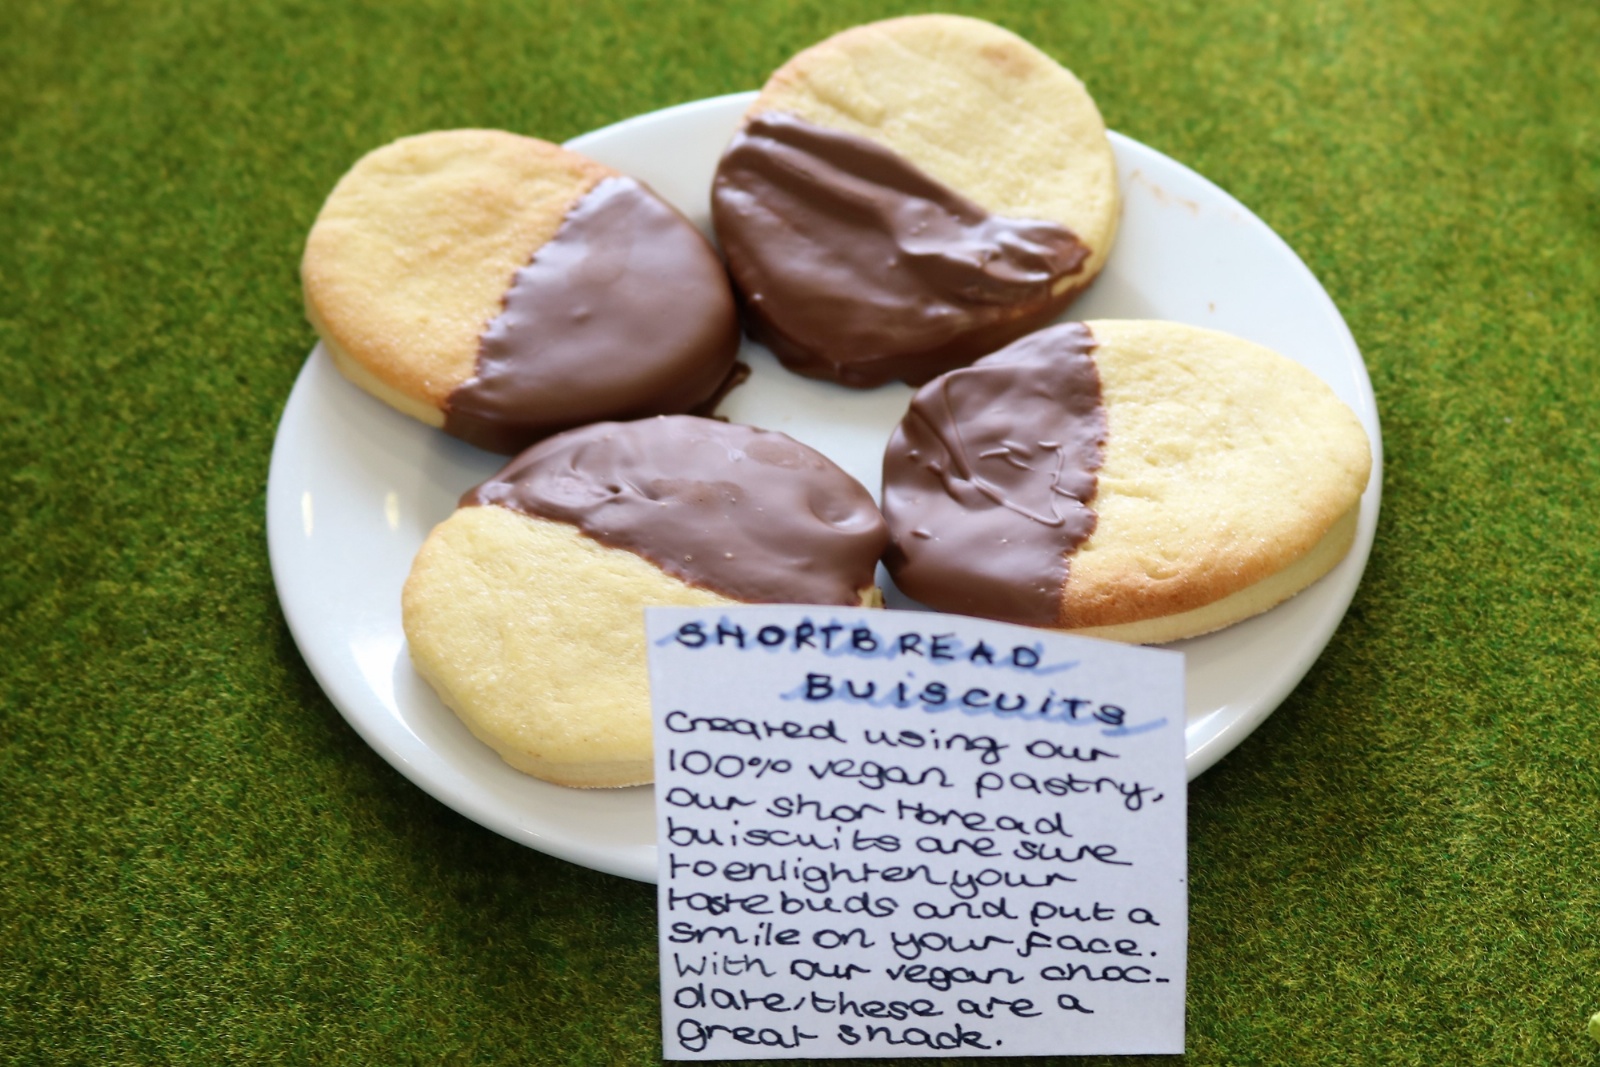 SHORTBREAD
BUISCUITS
Created using our
100% vegan pastry,
our shortbread
buiscuits are sure
to enlighten your
taste buds and put a
smile on your face.
With our vegan choc-
olate, these are a
great snack.